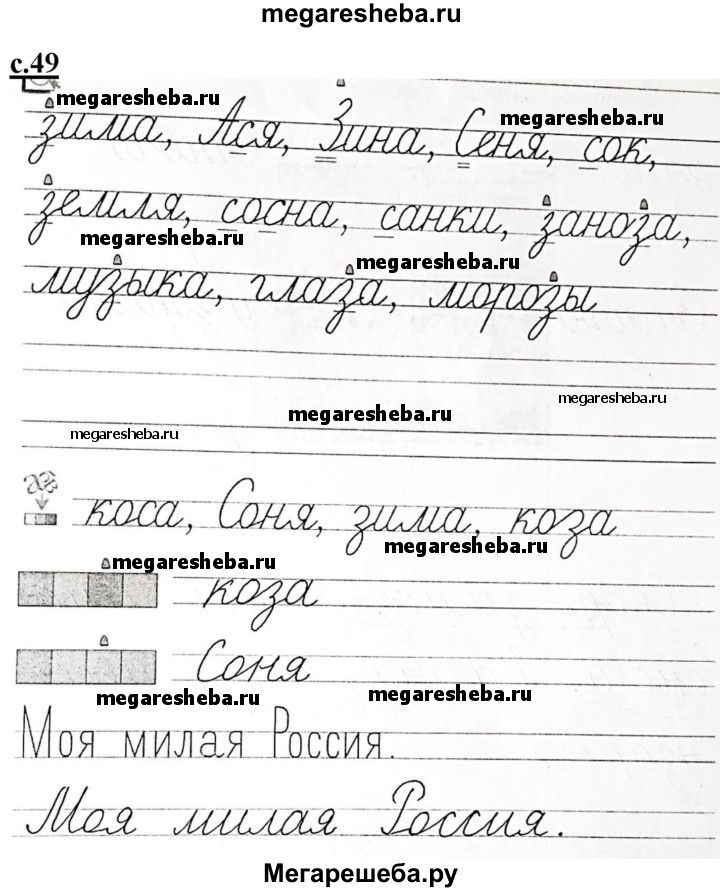 megaresheba.ru
с.49
megaresheba.ru
megaresheba.ru
зима, Ася, Зина, Сеня, сок,
земля, сосна, санки, заноза,
megaresheba.ru
megaresheba.ru
музыка, глаза, морозы
megaresheba.ru
megaresheba.ru
megaresheba.ru
коса, Соня, зима, коза
megaresheba.ru
megaresheba.ru
коза
Соня
megaresheba.ru
megaresheba.ru
Моя милая Россия.
Моя милая Россия.
Мегарешеба.ру